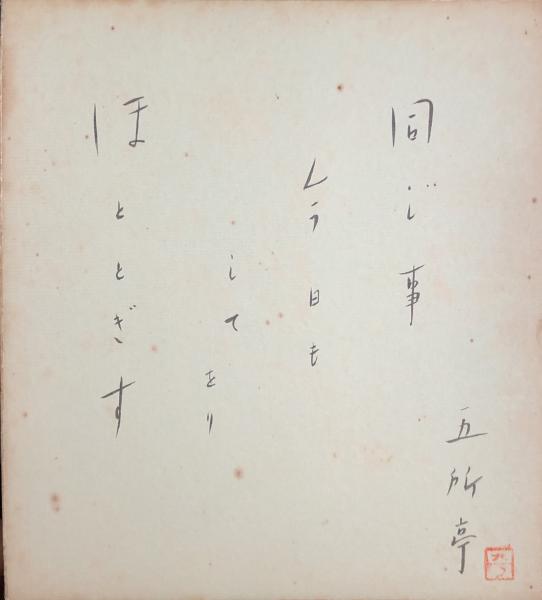 同じ事
今日も
して
をり
ほととぎす
五所亭